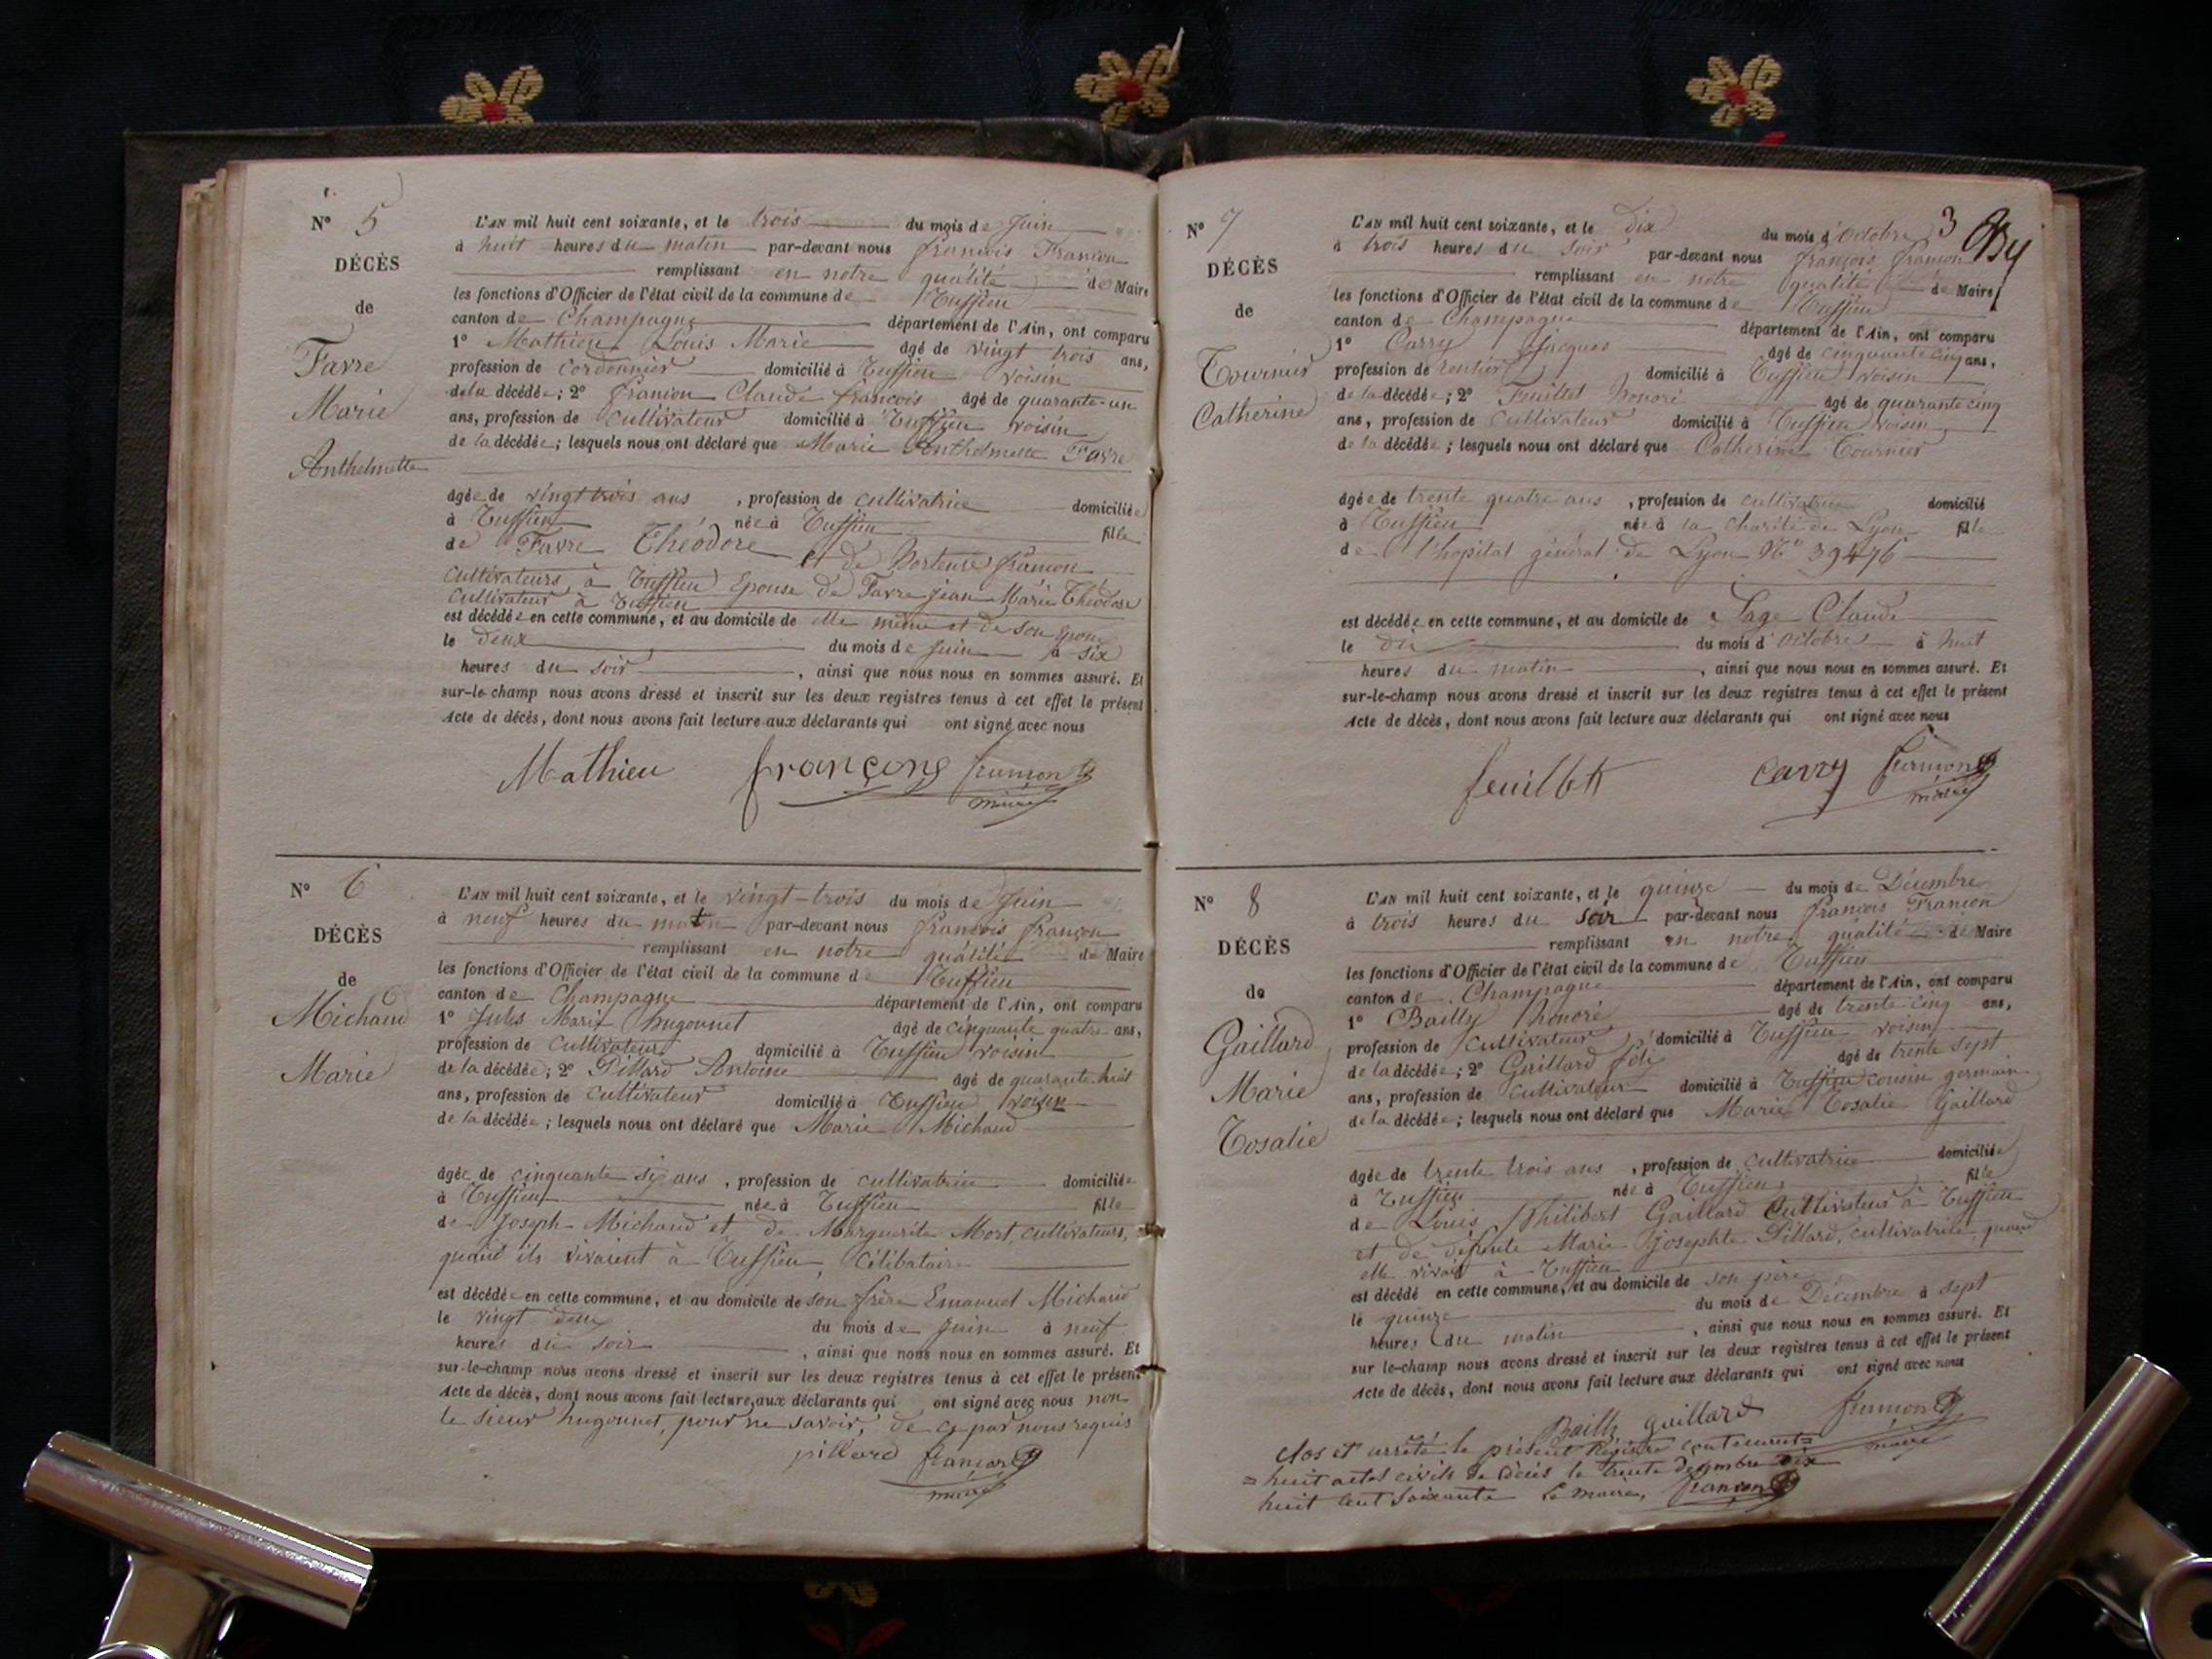 N° 5
DÉCÈS
de
Favre
Marie
Anthelmette
L'AN mil huit cent soixante, et le trois du mois de Juin
à huit heures du matin par-devant nous françois Françon
remplissant en notre qualité de Maire
les fonctions d'Officier de l'état civil de la commune de Tuffieu
canton de Champagne département de l'Ain, ont comparu
1° Mathieu Louis Marie âgé de vingt trois ans,
profession de cordonnier domicilié à Tuffieu voisin
de la décédée; 2° françon Claude françois âgé de quarante-un
ans, profession de cultivateur domicilié à Tuffieu voisin
de la décédée; lesquels nous ont déclaré que Marie Anthelmette Favre
âgée de vingt trois ans, profession de cultivatrice domiciliée
à Tuffieu née à Tuffieu fille
de Favre Théodore et de Hortense françon
cultivateurs à Tuffieu Epouse de Favre jean Marie Théodore
cultivateur à Tuffieu
est décédée en cette commune, et au domicile de elle même et de son Epoux
le deux du mois de Juin à six
heures du soir, ainsi que nous nous en sommes assuré. Et
sur-le-champ nous avons dressé et inscrit sur les deux registres tenus à cet effet le présent
Acte de décès, dont nous avons fait lecture aux déclarants qui ont signé avec nous
Mathieu françong françon
maire
N° 6
DÉCÈS
de
Michaud
Marie
L'AN mil huit cent soixante, et le vingt-trois du mois de Juin
à neuf heures du matin par-devant nous françois françon
remplissant en notre qualité de Maire
les fonctions d'Officier de l'état civil de la commune de Tuffieu
canton de Champagne département de l'Ain, ont comparu
1° Jules Marie hugonnet âgé de cinquante quatre ans,
profession de cultivateur domicilié à Tuffieu voisin
de la décédée; 2° Pillard Antoine âgé de quarante huit
ans, profession de cultivateur domicilié à Tuffieu voisin
de la décédée; lesquels nous ont déclaré que Marie Michaud
âgée de cinquante six ans, profession de cultivatrice domiciliée
à Tuffieu née à Tuffieu fille
de Joseph Michaud et de Marguerite Mort, cultivateurs,
quand ils vivaient à Tuffieu, Célibataire
est décédée en cette commune, et au domicile de son frère Emanuel Michaud
le vingt deux du mois de Juin à neuf
heures du soir, ainsi que nous nous en sommes assuré. Et
sur-le-champ nous avons dressé et inscrit sur les deux registres tenus à cet effet le présent
Acte de décès, dont nous avons fait lecture aux déclarants qui ont signé avec nous non
le sieur hugonnet, pour ne savoir, de ce par nous requis
pillard françon
maire
3
N° 7
DÉCÈS
de
Tournier
Catherine
L'AN mil huit cent soixante, et le dix du mois d'octobre
à trois heures du soir par-devant nous françois françon
remplissant en notre qualité de Maire
les fonctions d'Officier de l'état civil de la commune de Tuffieu
canton de Champagne département de l'Ain, ont comparu
1° Carry Jacques âgé de cinquante cinq ans,
profession de rentier domicilié à Tuffieu voisin
de la décédée; 2° Feuillet honoré âgé de quarante cinq
ans, profession de cultivateur domicilié à Tuffieu voisin
de la décédée; lesquels nous ont déclaré que Catherine Tournier
âgée de trente quatre ans, profession de cultivatrice domicilié
à Tuffieu née à la charité de Lyon fille
de l'hopital général de Lyon N° 39476
est décédée en cette commune, et au domicile de Sage Claude
le dix du mois d'octobre à huit
heures du matin, ainsi que nous nous en sommes assuré. Et
sur-le-champ nous avons dressé et inscrit sur les deux registres tenus à cet effet le présent
Acte de décès, dont nous avons fait lecture aux déclarants qui ont signé avec nous
feuillet Carry françon
maire
N° 8
DÉCÈS
de
Gaillard
Marie
Tosalie
L'AN mil huit cent soixante, et le quinze du mois de Décembre
à trois heures du soir par-devant nous françois Françon
remplissant en notre qualité de Maire
les fonctions d'Officier de l'état civil de la commune de Tuffieu
canton de Champagne département de l'Ain, ont comparu
1° Bailly honoré âgé de trente cinq ans,
profession de cultivateur domicilié à Tuffieu voisin
de la décédée; 2° Gaillard âgé de trente sept
ans, profession de cultivateur domicilié à Tuffieu cousin germain
de la décédée; lesquels nous ont déclaré que Marie Tosalie Gaillard
âgée de trente trois ans, profession de cultivatrice domiciliée
à Tuffieu née à Tuffieu fille
de Louis Philibert Gaillard Cultivateur à Tuffieu
et de défunte Marie Josephte Pillard, cultivatrice, quand
elle vivait à Tuffieu
est décédé en cette commune, et au domicile de son père
le quinze du mois de Décembre à sept
heures du matin, ainsi que nous nous en sommes assuré. Et
sur le-champ nous avons dressé et inscrit sur les deux registres tenus à cet effet le présent
Acte de décès, dont nous avons fait lecture aux déclarants qui ont signé avec nous
Bailly gaillard françon
maire
Clos et arrêté le présent Registre contenant
huit actes civils de décès le trente décembre dix
huit cent soixante Le maire, françon